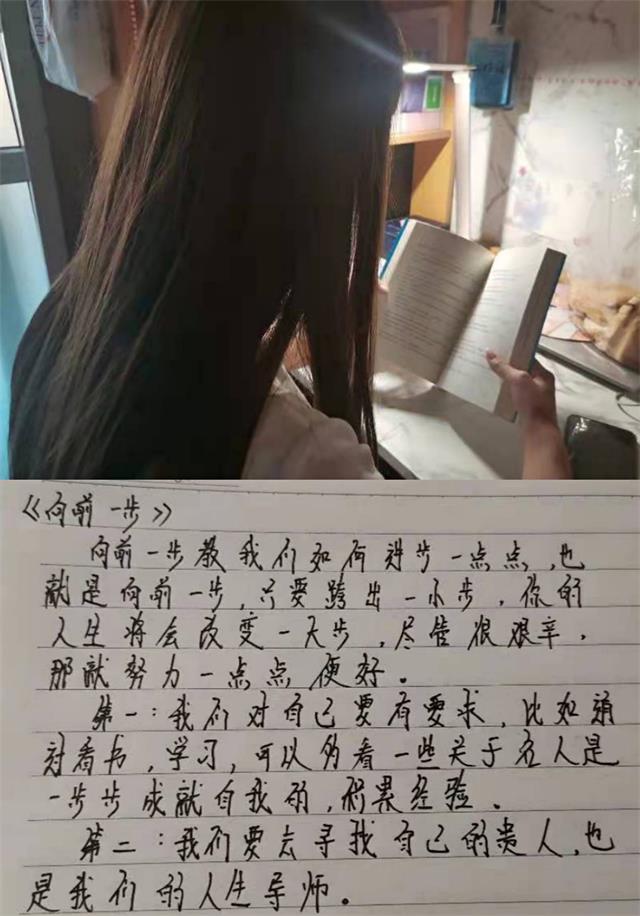 《向前一步》
向前一步教我们如何进步一点点,也
就是向前一步,只要跨出一小步,你的
人生将会改变一大步,尽管很艰辛,
那就努力一点点便好。
第一:我们对自己要有要求,比如
对看书,学习,可以多看一些关于名人是
一步步成就自我的,积累经验。
第二:我们要去寻找自己的贵人,也
是我们的人生导师。